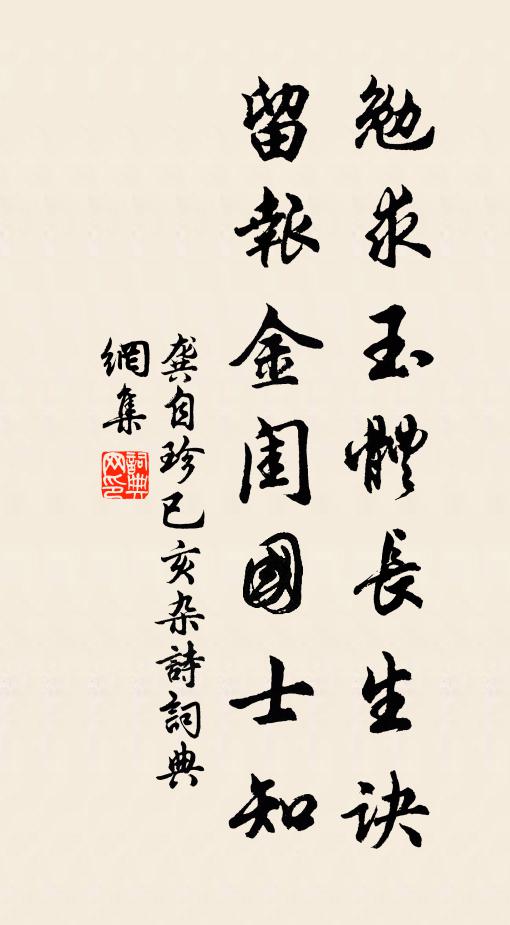 勉求玉體長生訣
留報金閨國士知
龔自珍己亥杂詩詞典
網集
詞典網印